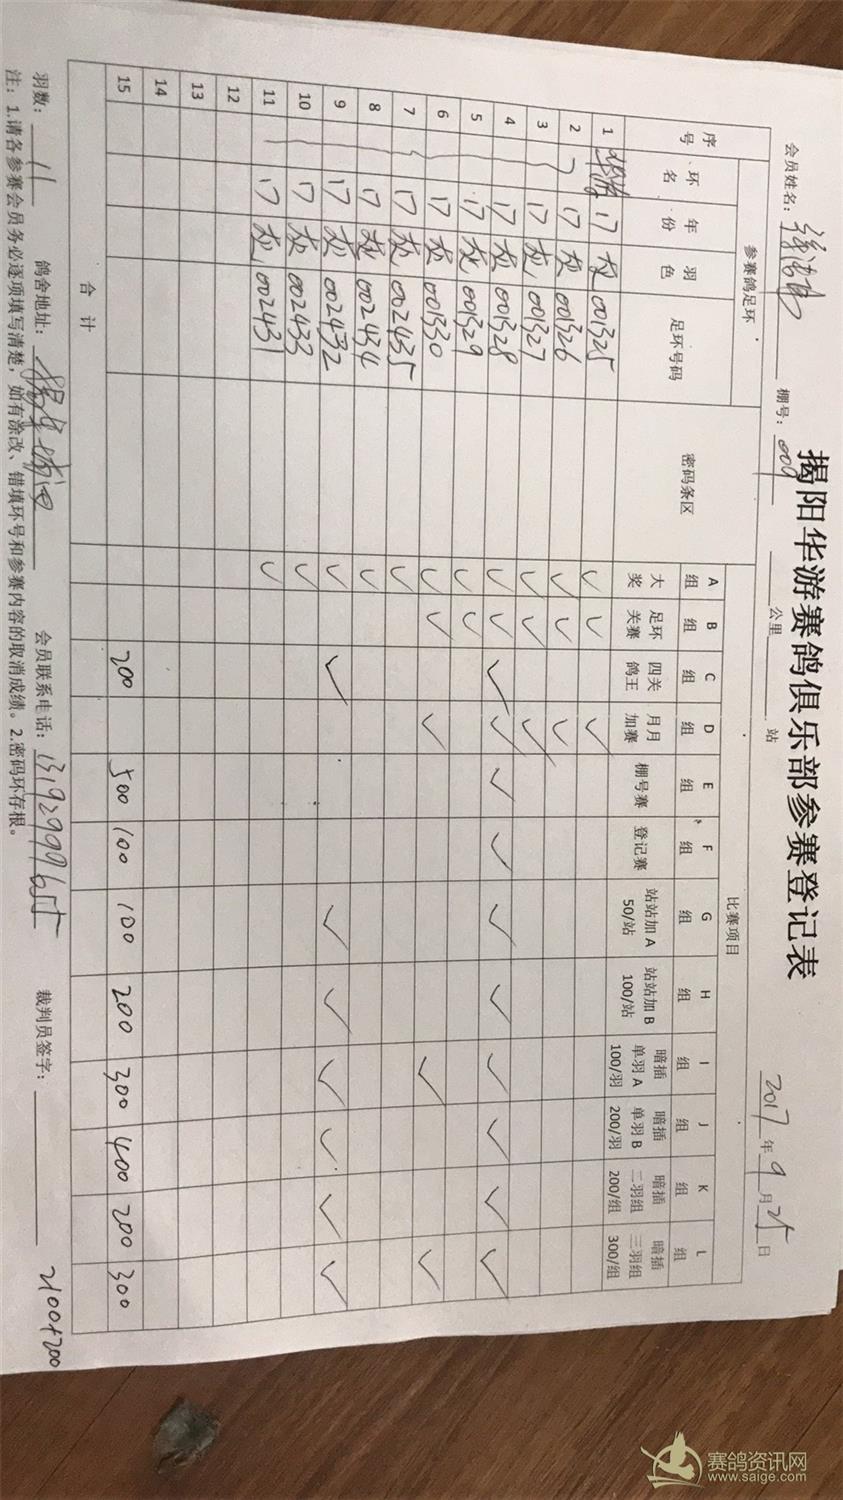 揭阳华游赛鸽俱乐部参赛登记表
会员姓名： 棚号：009 公里 站 2017年9月25日
参赛鸽足环 密码条区 比赛项目
序号 环名 年份 羽色 足环号码 A组 B组 C组 D组 E组 F组 G组 H组 I组 J组 K组 L组
大奖 足环关赛 四关鸽王 月月加赛 棚号赛 登记赛 站站加A 50/站 站站加B 100/站 暗插单羽A 100/羽 暗插单羽B 200/羽 暗插二羽组 200/组 暗插三羽组 300/组
1 华游 17 灰 001325 ✓ ✓ ✓
2 17 灰 001326 ✓ ✓ ✓
3 17 灰 001327 ✓ ✓ ✓
4 17 灰 001328 ✓ ✓ ✓ ✓ ✓ ✓ ✓ ✓ ✓ ✓ ✓ ✓
5 17 灰 001329 ✓ ✓
6 17 灰 001330 ✓ ✓ ✓ ✓ ✓
7 17 灰 002435 ✓
8 17 灰 002434 ✓
9 17 灰 002432 ✓ ✓ ✓ ✓ ✓ ✓ ✓ ✓
10 17 灰 002433 ✓
11 17 灰 002431 ✓
12
13
14
15 合计 200 500 100 100 200 300 400 200 300
羽数：11 鸽舍地址： 会员联系电话： 裁判员签字： 2100+200
注：1.请各参赛会员务必逐项填写清楚，如有涂改、错填环号和参赛内容的取消成绩。2.密码环存根。
赛鸽资讯网
www.saige.com